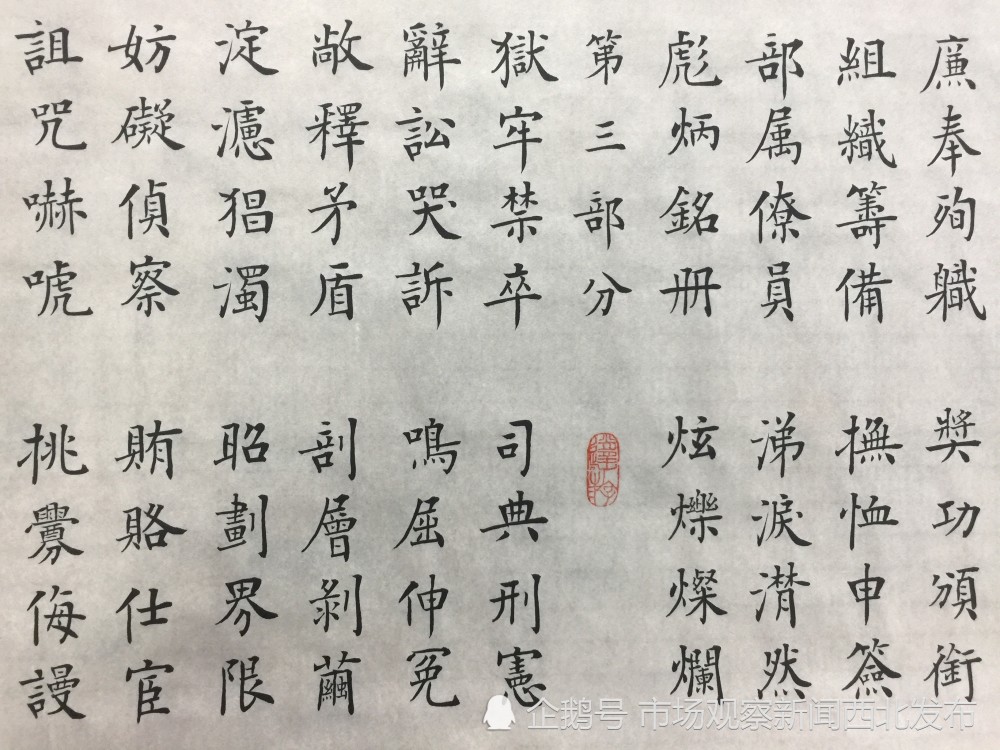 廉奉殉軄 獎功頒銜
組織籌備 撫恤申簽
部属僚員 涕淚潸然
彪炳銘册 炫爍燦爛
第三部分
獄牢禁卒 司典刑憲
辭訟哭訴 鳴屈伸冤
敞釋矛盾 剖層剝繭
淀濾猖濁 昭劃界限
妨礙偵察 賄賂仕宦
詛咒嚇唬 挑釁侮謾
企鹅号 市场观察新闻西北发布